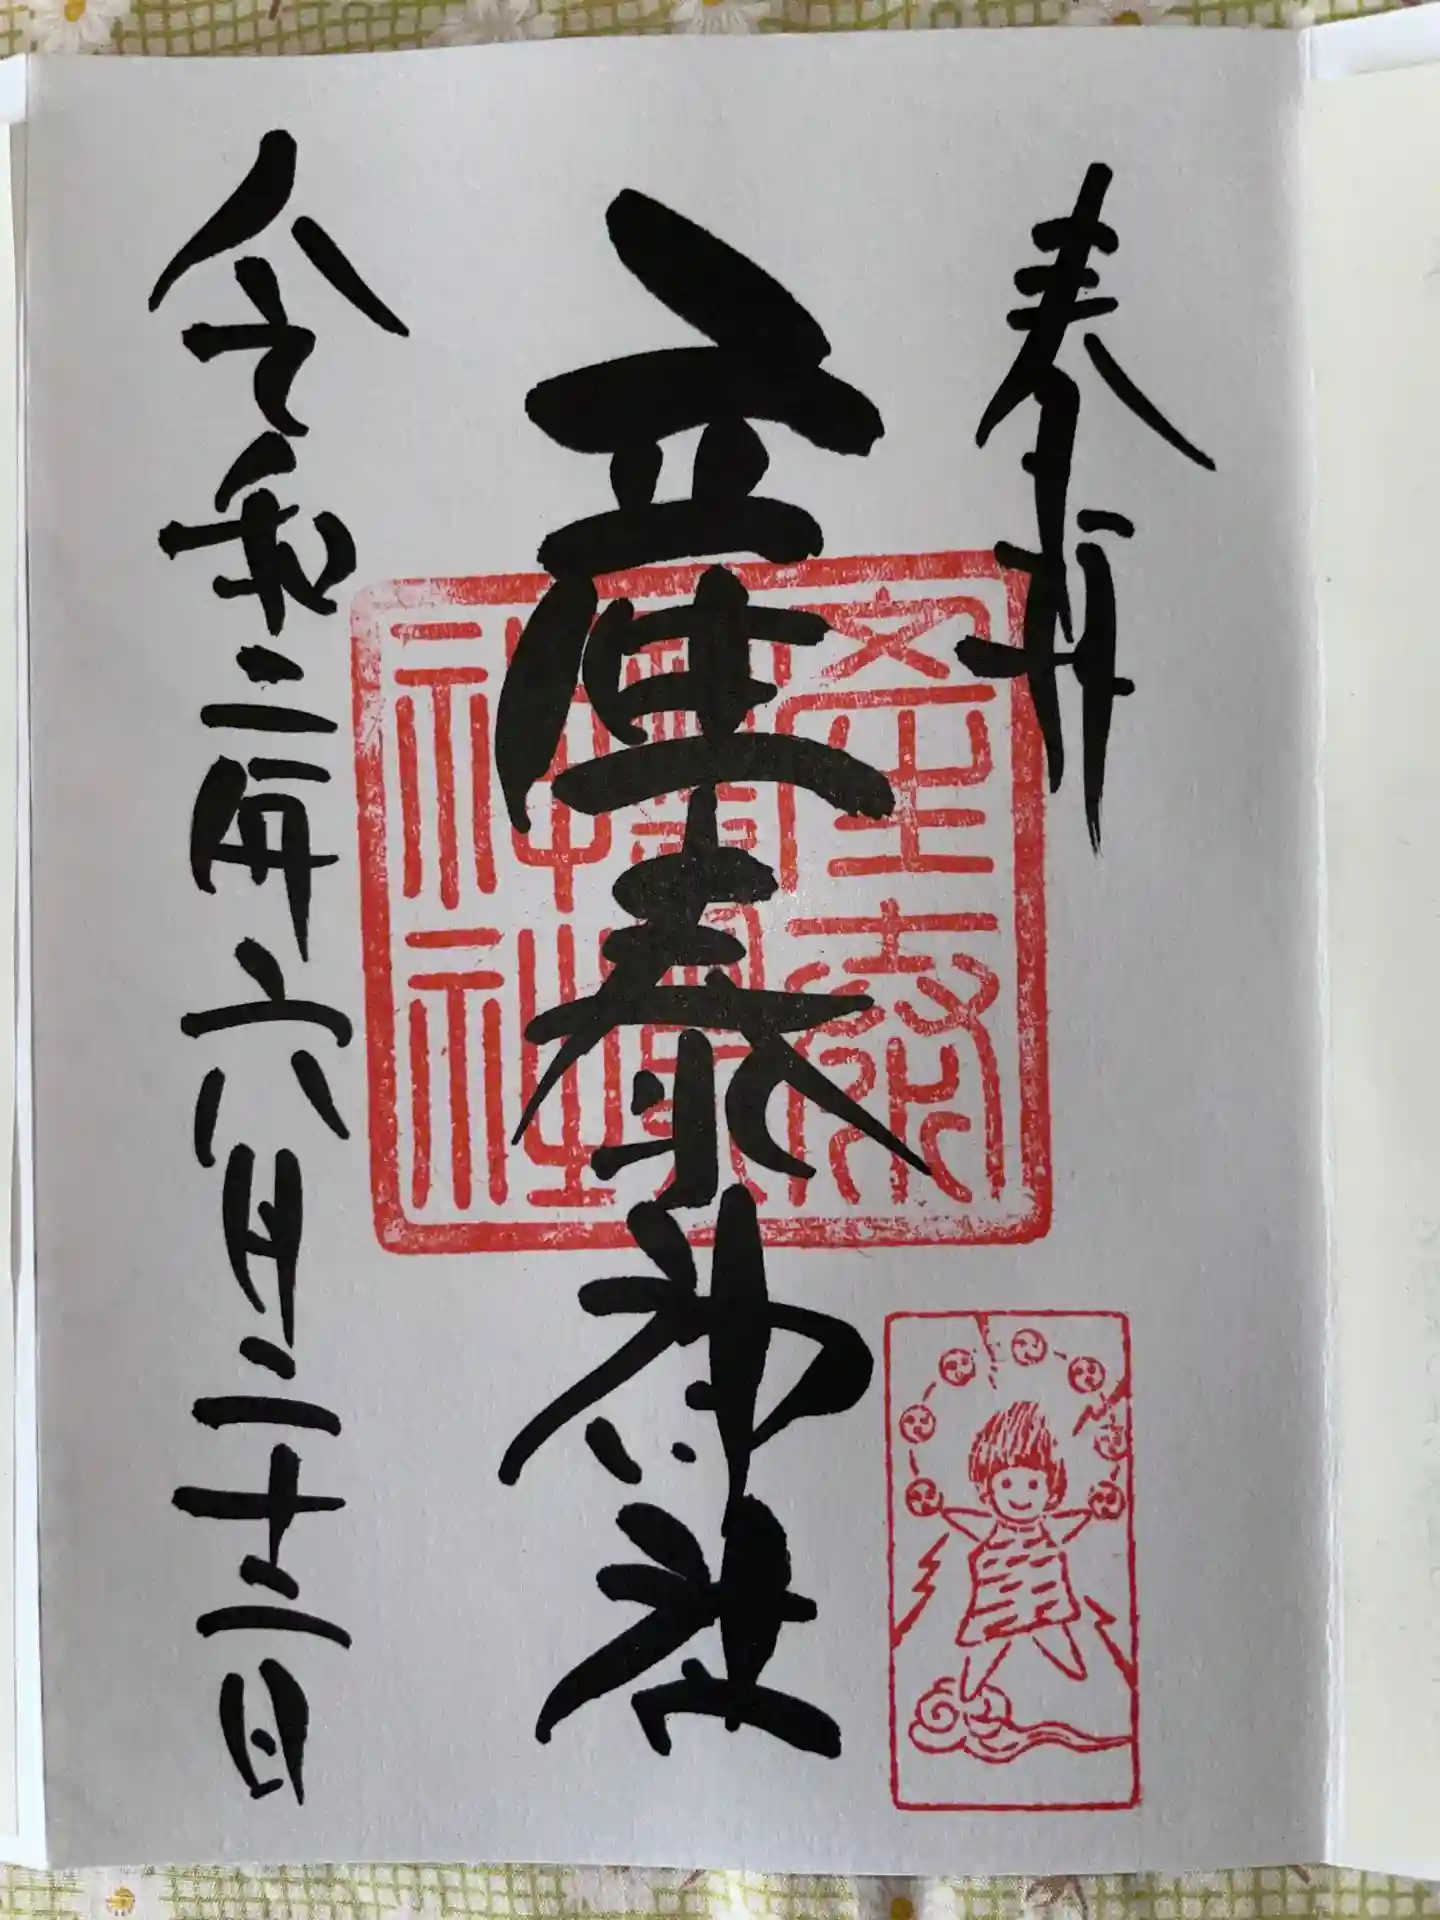 奉拝
産泰神社
令和二年六月二十二日
産泰
神社